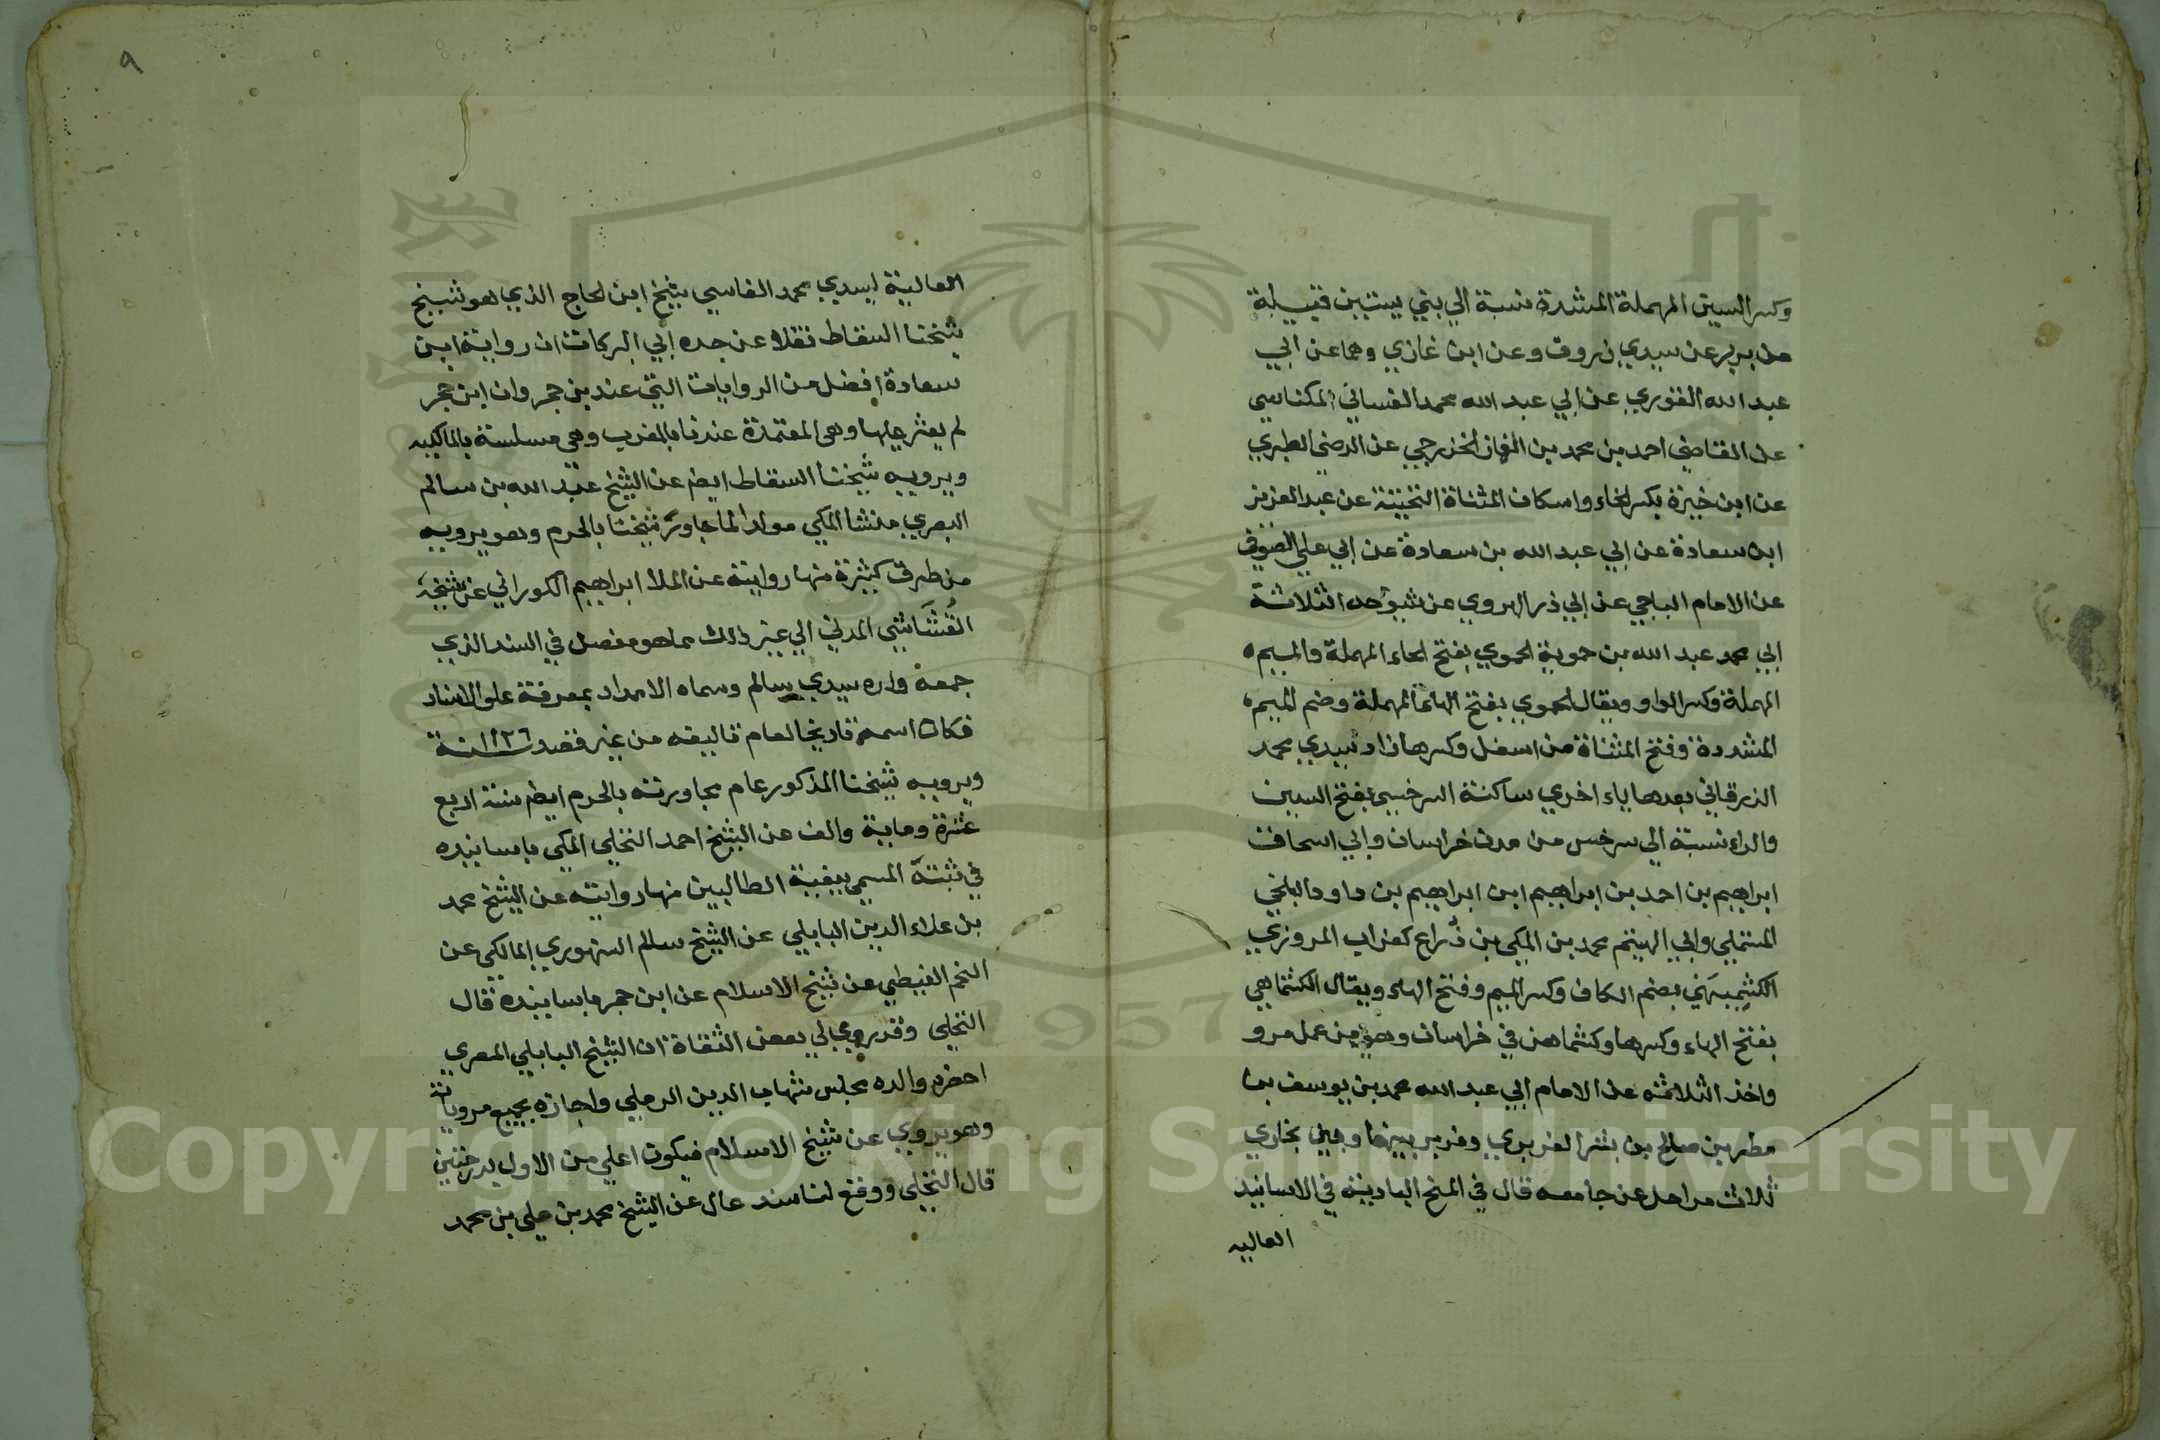 وكسر السين المهملة المشددة نسبة الي بني يستيتن قبيلة
من بربر عن سيدي زروق وعن ابن غازي وهما عن ابي
عبد الله القوري عن ابي عبد الله محمد الغساني المكناسي
عن القاضي احمد بن محمد بن الغماز الخزرجي عن الرضي الطبري
عن ابن خيرة بكسر الخاء واسكان المثناة التحتية عن عبد العزيز
ابن سعادة عن ابي عبد الله بن سعادة عن ابي علي الصدفي
عن الامام الباجي عن ابي ذر الهروي عن شيوخه الثلاثة
ابي محمد عبد الله بن حموية الحموي بفتح الحاء المهملة والميم
المهملة وكسر الواو ويقال الحموي بفتح الحاء المهملة وضم الميم
المشددة وفتح المثناة من اسفل وكسرها زاد سيدي محمد
الزرقاني بعدها ياء اخري ساكنة السرخسي بفتح السين
والراء نسبة الي سرخس من مدن خراسان وابي اسحاق
ابراهيم بن احمد بن ابراهيم ابن ابراهيم بن داود البلخي
المستملي وابي الهيثم محمد بن المكي بن ذُراع كغراب المروزي
الكشمِيهَني بضم الكاف وكسر الميم وفتح الهاء ويقال الكشماهي
بفتح الهاء وكسرها وكشماهن في خراسان وهي من عمل مرو
واخذ الثلاثة عن الامام ابي عبد الله محمد بن يوسف بن
مطر بن صالح بن بشر الفربري وفربر بينها وبين بخاري
ثلاث مراحل عن جامعه قال في المنح البادية في الاسانيد
العاليه
٩
العالية لسيدي محمد الفاسي شيخ ابن الحاج الذي هو شيخ
شيخنا السقاط نقلا عن جده ابي البركات ان رواية ابن
سعادة افضل من الروايات التي عند بن حجر وان ابن حجر
لم يعثر عليها وهي المعتمدة عندنا بالمغرب وهي مسلسلة بالمالكيه
ويرويه شيخنا السقاط ايضم عن الشيخ عبد الله بن سالم
البصري منشا المكي مولدا لما جاور شيخنا بالحرم وهو يرويه
من طرق كثيرة منها روايته عن الملا ابراهيم الكوراني عن شيخه
القُشَاشي المدني الي غير ذلك مما هو مفصل في السند الذي
جمعه ولده سيدي سالم وسماه الامداد بمعرفة علو الاسناد
فكان اسمه تاريخا لعام تاليفه من غير قصد ١١٢٦ سنة
ويرويه شيخنا المذكور عام مجاورته بالحرم ايضم سنة اربع
عشرة وماية والف عن الشيخ احمد النخلي المكي باسانيده
في ثبته المسمي ببغية الطالبين منها روايته عن الشيخ محمد
بن علاء الدين البابلي عن الشيخ سالم السنهوري المالكي عن
النجم الغيطي عن شيخ الاسلام عن ابن حجر باسانيده قال
النخلي وقد روي لي بعض الثقاة ان الشيخ البابلي المصري
احضره والده مجلس شهاب الدين الرملي واجازه بجميع مروياته
وهو يروي عن شيخ الاسلام فيكون اعلي من الاول بدرجتين
قال النخلي ووقع لنا سند عال عن الشيخ محمد بن علي بن محمد
Copyright © King Saud University
1957